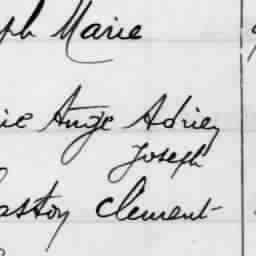 ph Marie
ie Ange Adrien
Joseph
aston Clement